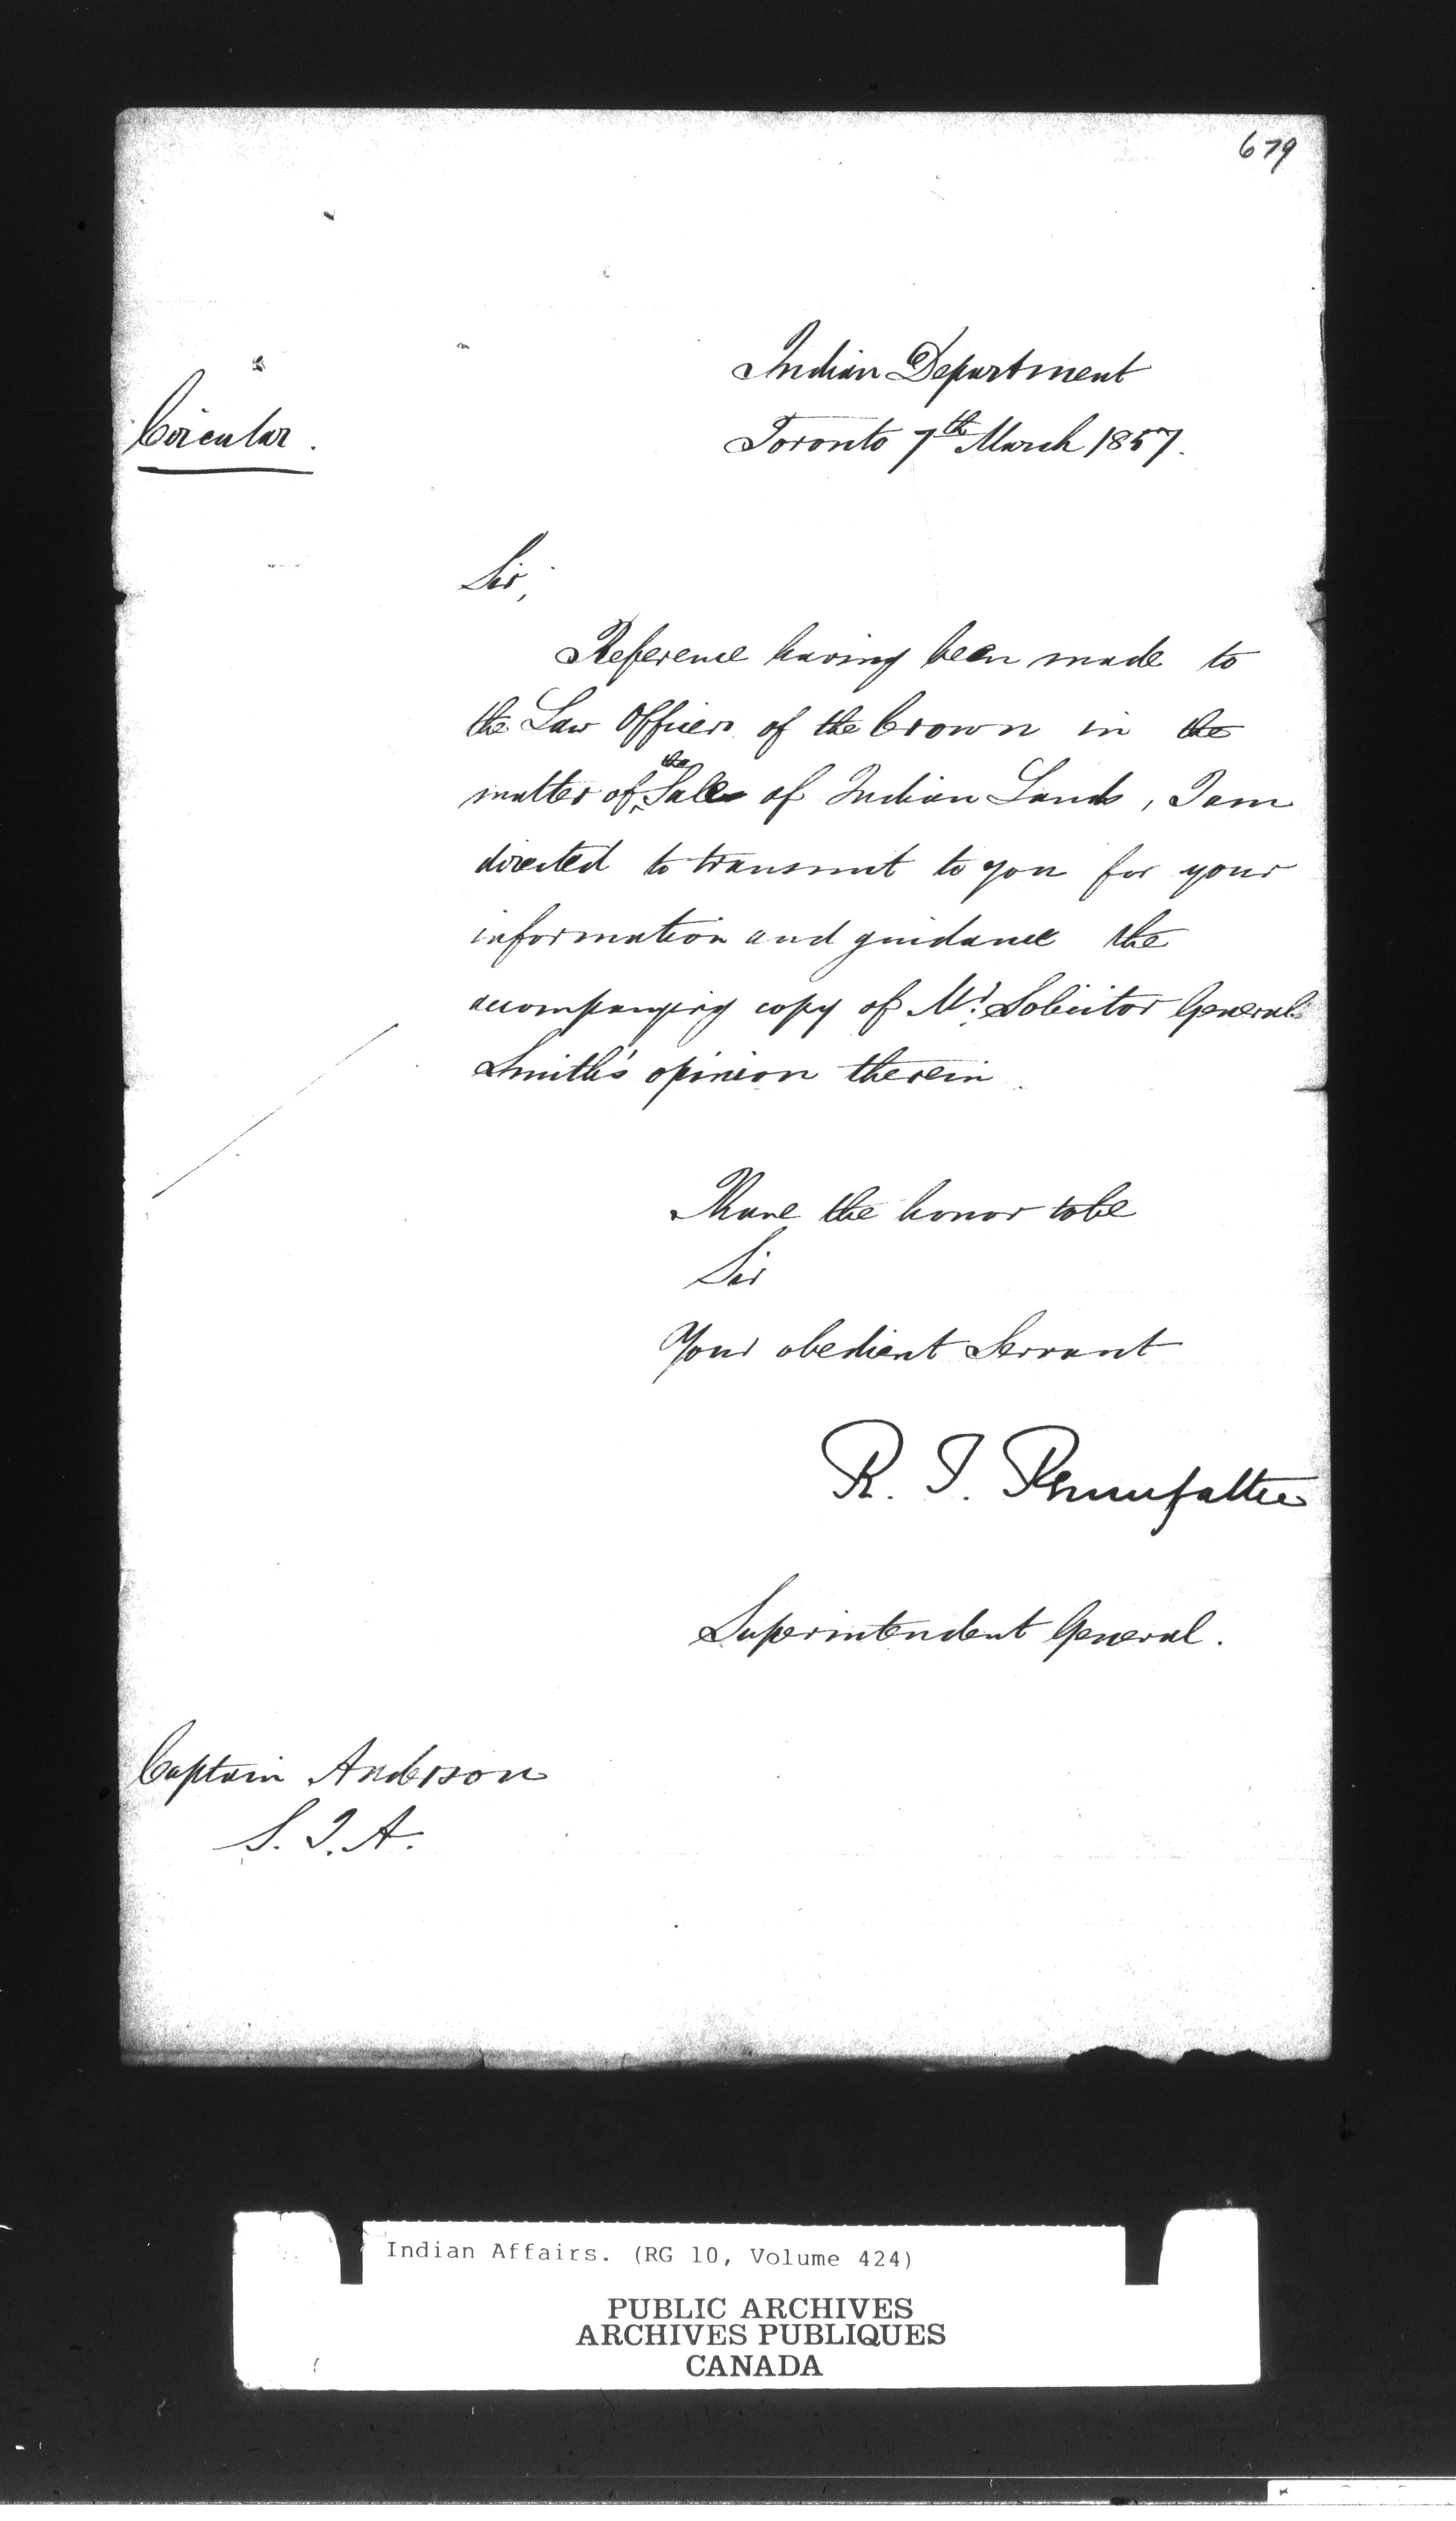 679
Indian Department
Circular.
Toronto 7th March 1857.
Sir,
Reference having been made to
the Law Officers of the Crown in the
the
matter of Sale of Indian Lands, I am
directed to transmit to you for your
information and guidance the
accompanying copy of Mr. Solicitor General
Smith's opinion therein.
I have the honor to be
Sir
Your obedient Servant
R. T. Pennefather
Superintendent General.
Captain Anderson
S. I. A.
Indian Affairs. (RG 10, Volume 424)
PUBLIC ARCHIVES
ARCHIVES PUBLIQUES
CANADA